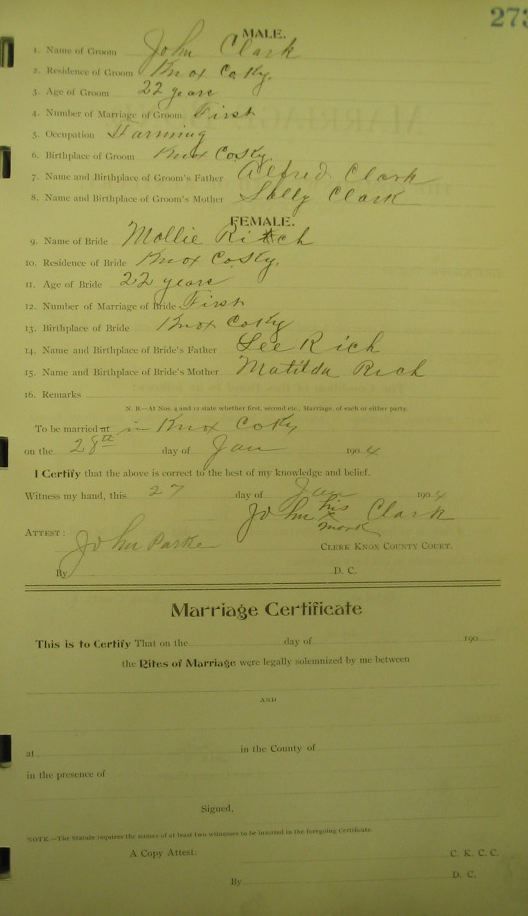 273
MALE.
1. Name of Groom John Clark
2. Residence of Groom Knox Co Ky.
3. Age of Groom 22 years
4. Number of Marriage of Groom First
5. Occupation Farming
6. Birthplace of Groom Knox Co Ky
7. Name and Birthplace of Groom's Father Alfred Clark
8. Name and Birthplace of Groom's Mother Sally Clark
FEMALE.
9. Name of Bride Mollie Rich
10. Residence of Bride Knox Co Ky.
11. Age of Bride 22 years
12. Number of Marriage of Bride First
13. Birthplace of Bride Knox Co Ky
14. Name and Birthplace of Bride's Father Lee Rich
15. Name and Birthplace of Bride's Mother Matilda Rich
16. Remarks
N. B.—At Nos. 4 and 12 state whether first, second etc., Marriage, of each or either party.
To be married at in Knox Co Ky
on the 28th day of Jan 1904
I Certify that the above is correct to the best of my knowledge and belief.
Witness my hand, this 27 day of Jan 1904
John his x mark Clark
ATTEST: John Parker
CLERK KNOX COUNTY COURT.
By D. C.
Marriage Certificate
This is to Certify That on the day of 190
the Rites of Marriage were legally solemnized by me between
AND
at in the County of
in the presence of
Signed,
NOTE.—The Statute requires the names of at least two witnesses to be inserted in the foregoing Certificate.
A Copy Attest: C. K. C. C.
By D. C.